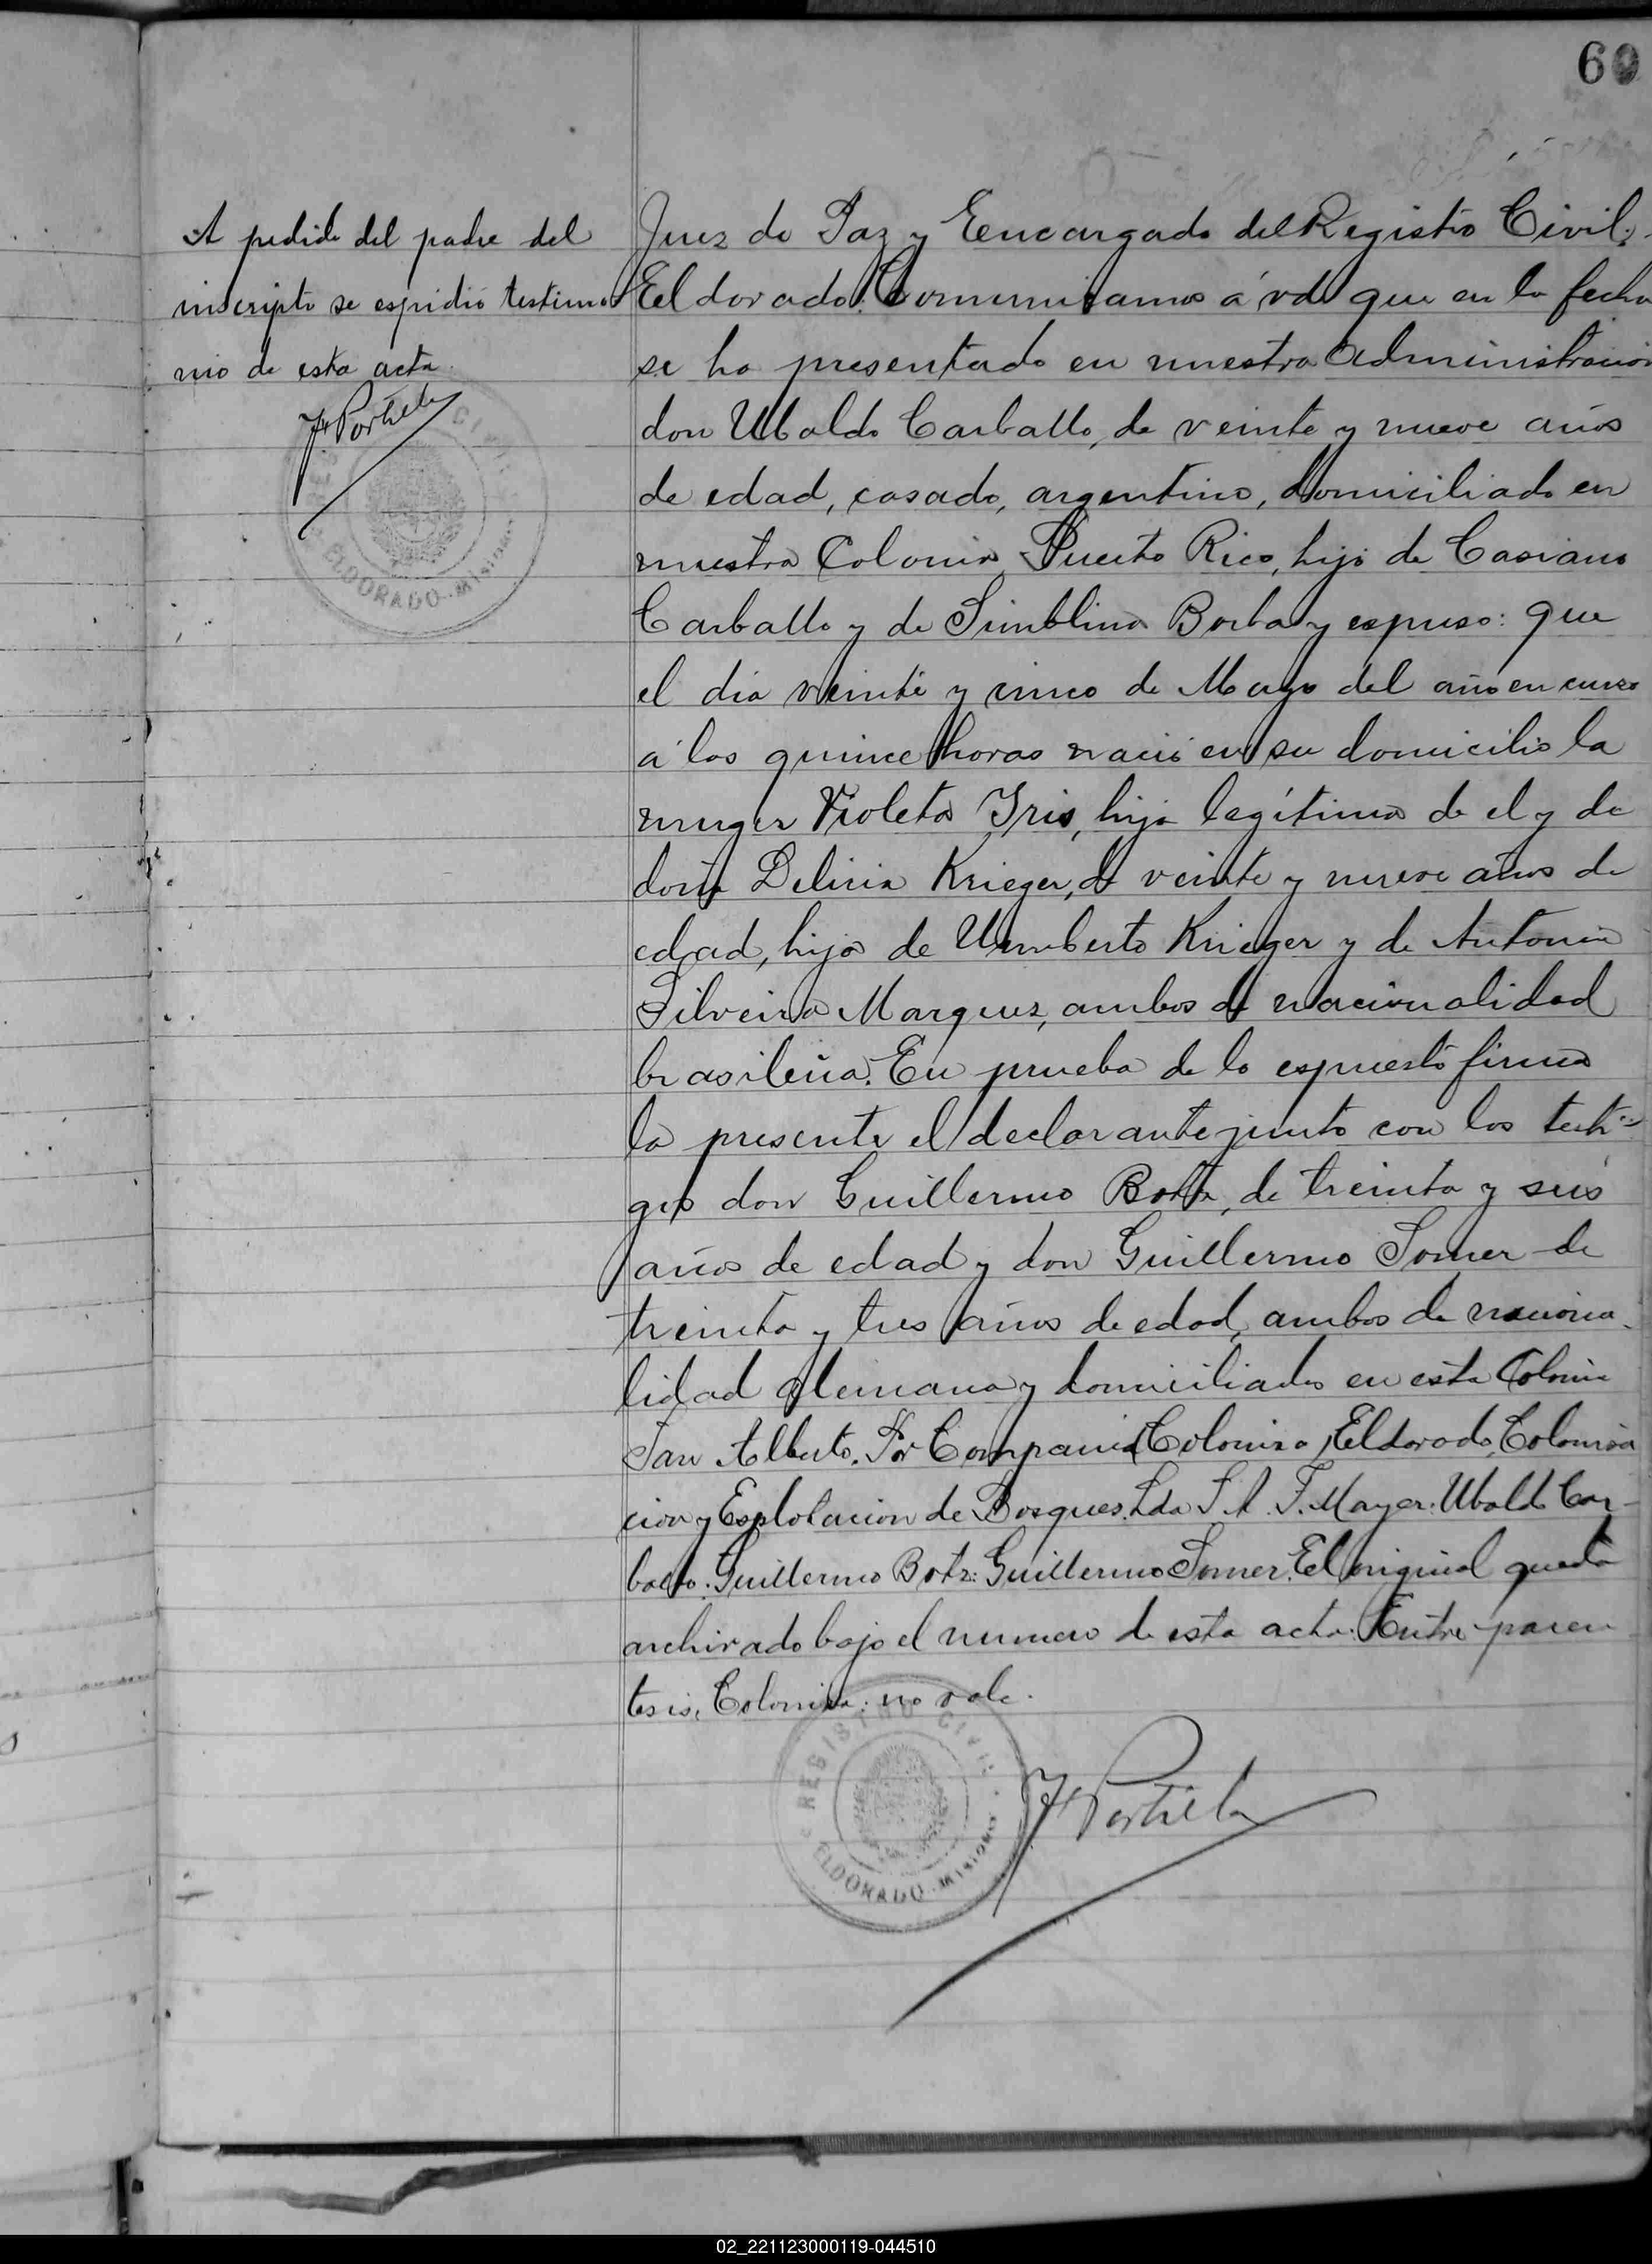 60
A pedido del padre del
inscripto se espidió testimo
nio de esta acta.
F Portela
CIVIL
ELDORADO - Misiones
Juez de Paz y Eencargado del Registro Civil,
Eeldorado. Comunicamos á vd. que en la fecha
se ha presentado en nuestra Administracion
don Ubaldo Carballo, de veinte y nueve años
de edad, casado, argentino, domiciliado en
nuestra Colonia Puerto Rico, hijo de Casiano
Carballo y de Simblina Borba y espuso: que
el dia veinte y cinco de Mayo del año en curso
á las quince horas nació en su domicilio la
muger Violeta Iris, hija legítima de el y de
doña Deliria Krieger, de veinte y nueve años de
edad, hija de Umberto Krieger y de Antonia
Silveira Marquez, ambos de nacionalidad
brasileña. En prueba de lo espuesto firma
la presente el declarante junto con los testi-
gos don Guillermo Botz, de treinta y seis
años de edad y don Guillermo Somer de
treinta y tres años de edad, ambos de naciona-
lidad alemana y domiciliados en esta Colonia
San Alberto. Por Compania (Coloniza) Eeldorado, Coloniza
cion y Esplotacion de Bosques. Lda S. A. F. Mayer. Ubaldo Car-
ballo. Guillermo Botz: Guillermo Somer. El original queda
archivado bajo el numero de esta acta. Entre paren
tesis, Coloniza: no vale.
REGISTRO CIVIL
ELDORADO - Misiones
F Portela
02_221123000119-044510